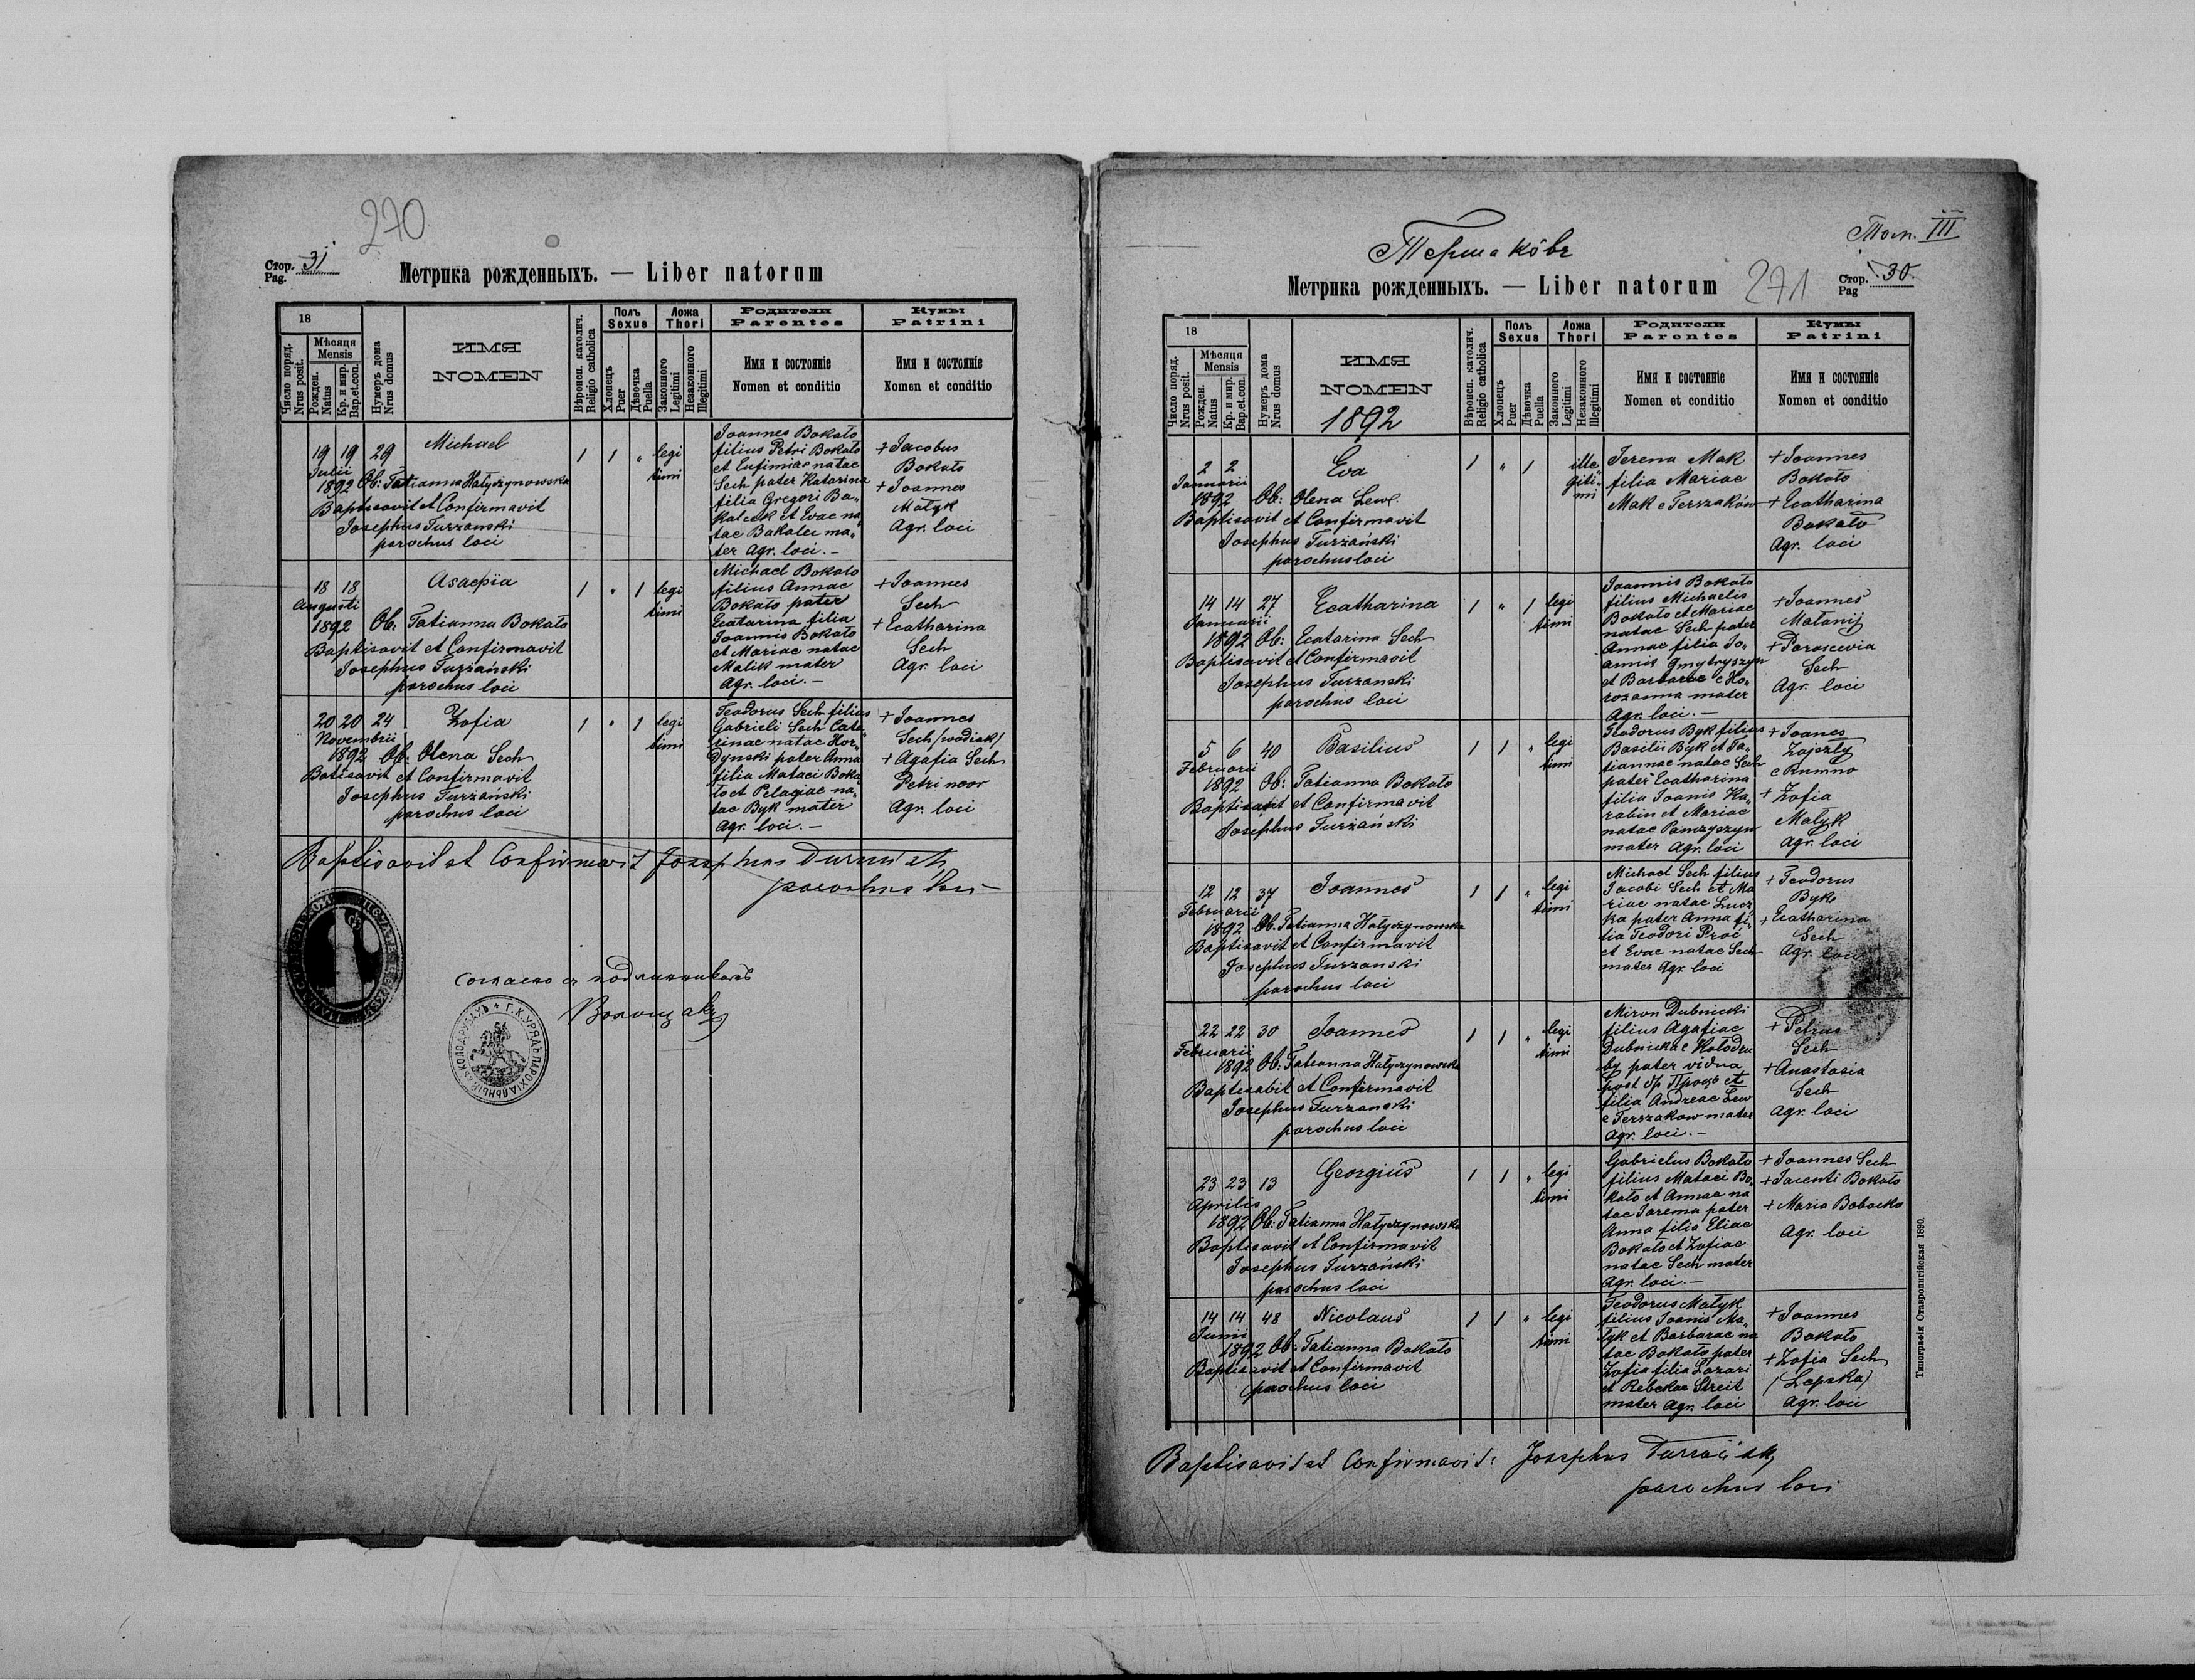 270
Стор. 31
Pag.
Метрика рожденныхъ. — Liber natorum
18
Число поряд. Nrus posit.
Мѣсяця Mensis
Рожден. Natus
Кр. и мир. Bap.et.con.
Нумеръ дома Nrus domus
ИМЯ
NOMEN
Вѣроисп. католич. Religio catholica
Полъ Sexus
Хлопецъ Puer
Дѣвочка Puella
Ложа Thori
Законного Legitimi
Незаконного Illegitimi
Родители
Parentes
Имя и состоянiе
Nomen et conditio
Кумы
Patrini
Имя и состоянiе
Nomen et conditio
19 19 29 Michael 1 1 „ legi
timi
Julii
1892 Ob: Tatianna Hałyczynowska
Baptisavit et Confirmavit
Josephus Turzanski
parochus loci
Joannes Bokało
filius Petri Bokało
et Eufimiae natae
Sech pater Katarina
filia Gregori Ba„
kalcek et Evae na
tae Bakalec ma„
ter Agr. loci. —
+ Jacobus
Bokało
+ Joannes
Małyk
Agr. loci
18 18 Asaefia 1 „ 1 legi
timi
Augusti
1892 Ob: Tatianna Bokało
Baptisavit et Confirmavit
Josephus Turzański
parochus loci
Michael Bokało
filius Annae
Bokało pater
Ecatarina filia
Joannis Bokało
et Mariae natae
Malik mater
Agr. loci. —
+ Joannes
Sech
+ Ecatharina
Sech
Agr. loci
20 20 24 Zofia 1 „ 1 legi
timi
Novembrii
1892 Ob: Olena Sech
Batisavit et Confirmavit
Josephus Turzański
parochus loci
Teodorus Sech filius
Gabrieli Sech Cata
rinae natae Hor„
dynski pater Anna
filia Mataei Boka
ło et Pelagiae na„
tae Byk mater
Agr. loci. —
+ Joannes
Sech (wodiak)
+ Agafia Sech
Petri uxor
Agr. loci
Baptisavit et Confirmavit Josephus Turzański
parochus loci —
Согласно съ подлинникомъ
Г.К.УРЯДЪ ПАРОХIАЛЬНЫЙ въ КОЛОДРУБАХЪ
Тершакôвъ
Том. III
Метрика рожденныхъ. — Liber natorum
271
Стор. 30.
Pag
18
Число поряд. Nrus posit.
Мѣсяця Mensis
Рожден. Natus
Кр. и мир. Bap.et.con.
Нумеръ дома Nrus domus
ИМЯ
NOMEN
1892
Вѣроисп. католич. Religio catholica
Полъ Sexus
Хлопецъ Puer
Дѣвочка Puella
Ложа Thori
Законного Legitimi
Незаконного Illegitimi
Родители
Parentes
Имя и состоянiе
Nomen et conditio
Кумы
Patrini
Имя и состоянiе
Nomen et conditio
2 2 Eva 1 „ 1 ille„
giti„
mi
Januarii
1892 Ob: Olena Lew.
Baptisavit et Confirmavit
Josephus Turzański
parochus loci
Jerena Mak
filia Mariae
Mak e Terszaków
+ Joannes
Bokało
+ Ecatharina
Bokało
Agr. loci
14 14 27 Ecatharina 1 „ 1 legi
timi
Januarii
1892 Ob: Ecatarina Sech
Baptisavit et Confirmavit
Josephus Turzanski
parochus loci
Joannis Bokało
filius Michaelis
Bokało et Mariae
natae Sech pater
Annae filia Jo„
annis Dmytryszyn
et Barbarae e Ho„
rozanna mater
Agr. loci. —
+ Joannes
Matanij
+ Parascevia
Sech
Agr. loci
5 6 40 Basilius 1 1 „ legi
timi
Februarii
1892 Ob: Tatianna Bokało
Baptisavit et Confirmavit
Josephus Turzański
Teodorus Byk filius
Basilii Byk et Ta„
tiannae natae Sech
pater Ecatharina
filia Joanis Ka„
rabin et Mariae
natae Panzyszyn
mater Agr. loci
+ Joanes
Zajszły
e Rumno
+ Zofia
Małyk
Agr. loci
12 12 37 Joannes 1 1 „ legi
timi
Februarii
1892 Ob. Tatianna Hałyczynowska
Baptisavit et Confirmavit
Josephus Turzanski
parochus loci
Michael Sech filius
Jacobi Sech et Ma
riae natae Łucz
ka pater Anna fi„
lia Teodori Proć
et Evae natae Sech
mater Agr. loci
+ Teodorus
Byk
+ Ecatharina
Sech
Agr. loci
22 22 30 Joannes 1 1 „ legi
timi
Februarii
1892 Ob: Tatianna Hałyczynowska
Baptisabit et Confirmavit
Josephus Turzanski
parochus loci
Miron Dubnicki
filius Agafiae
Dubnicka e Kołodru
by pater vidua
post Проць et
filia Andreae Lew
e Terszakow mater
Agr. loci. —
+ Petrus
Sech
+ Anastasia
Sech
Agr. loci
23 23 13 Georgius 1 1 „ legi
timi
Aprilis
1892 Ob: Tatianna Hałyczynowska
Baptisavit et Confirmavit
Josephus Turzański
parochus loci
Gabrielus Bokało
filius Mataei Bo„
kało et Annae na
tae Jarema pater
Anna filia Eliae
Bokało et Zofiae
natae Sech mater
Agr. loci. —
+ Joannes Sech
+ Jacenti Bokało
+ Maria Bobocka
Agr. loci
14 14 48 Nicolaus 1 1 „ legi
timi
Junii
1892 Ob: Tatianna Bokało
Baptisavit et Confirmavit
parochus loci
Teodorus Małyk
filius Joanis Ma„
łyk et Barbarae na
tae Bokało pater
Zofia filia Lazari
et Rebekae Streit
mater Agr. loci
+ Joannes
Bokało
+ Zofia Sech
(Lepska)
Agr. loci
Baptisavit et Confirmavit: Josephus Turzański
parochus loci
Типографiя Ставропигiйская 1890.